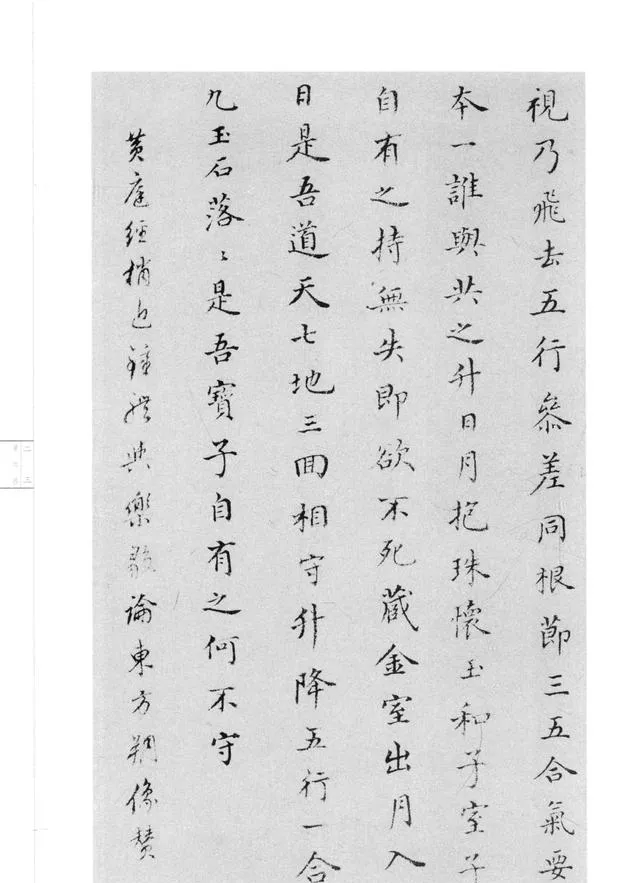 視乃飛去五行參差同根節三五合氣要
本一誰與共之升日月抱珠懷玉和子室子
自有之持無失即欲不死藏金室出月入
日是吾道天七地三回相守升降五行一合
九玉石落〻是吾寶子自有之何不守
黃庭經稍近鍾體與樂毅論東方朔像贊
二三